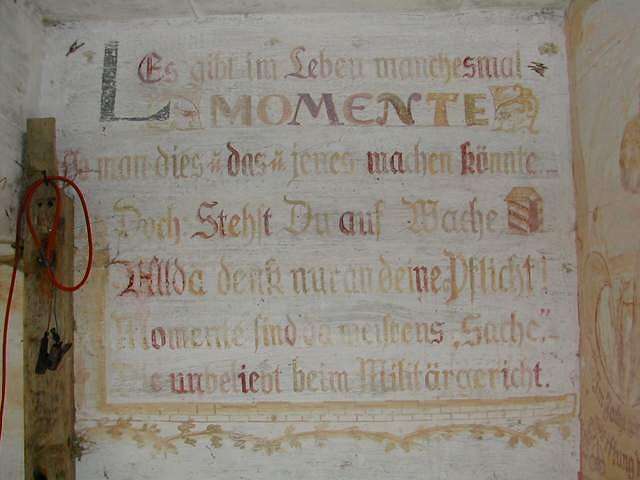 Es gibt im Leben manchesmal
MOMENTE
Da man dies u. das u. jenes machen könnte...
Doch Stehst Du auf Wache
Allda denk nur an deine Pflicht!
Momente sind da meistens „Sache“..
Die unbeliebt beim Militärgericht.